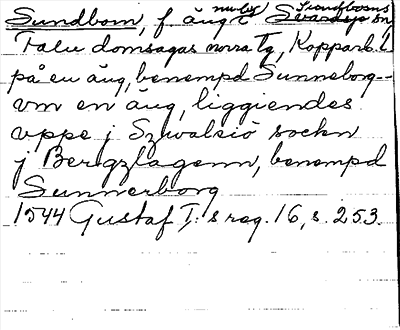 Sundbom, f. äng i Svärdsjö sn,
Falu domsagas norra tg, Kopparb. l.
på en äng, benempd Sunneborg --
vm en äng, liggiendes
vppe j Szwalsiö sockn
j Bergzlagenn, benempd
Sunnerborg
1544 Gustaf I:s reg. 16, s. 253.